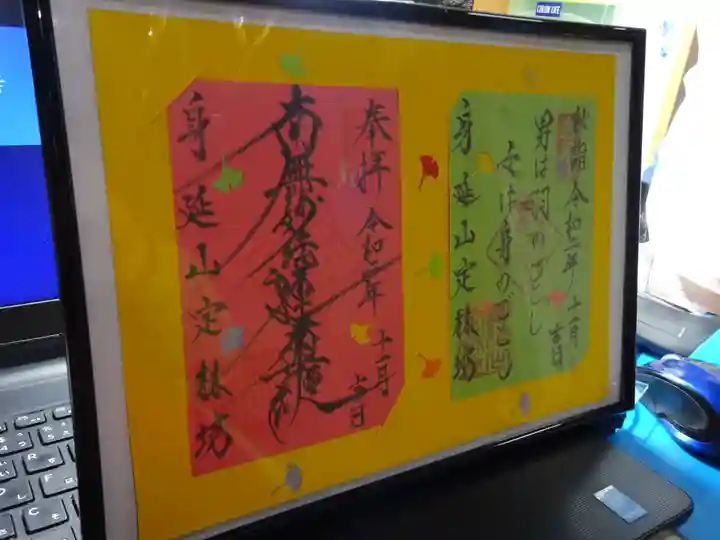 COLOR LIFE
奉拝 令和二年 十一月 吉日
南無妙法蓮華経
身延山定林坊
令和二年 十一月 吉日
男は羽のごとし
女は身のごとし
身延山定林坊